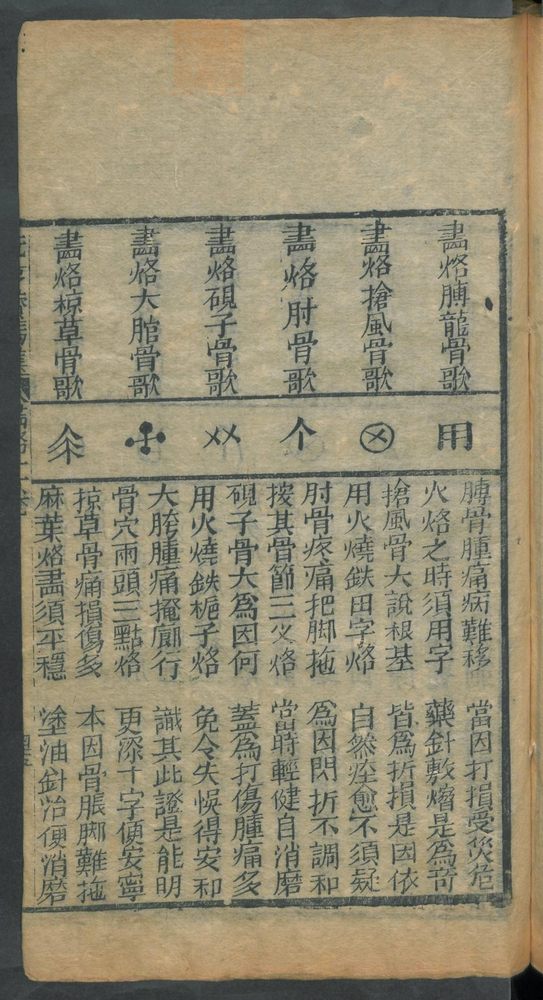 畫烙膊龍骨歌
用
膊骨腫痛病難移　當因打損受災危
火烙之時須用字　藥針敷熁是爲奇
畫烙搶風骨歌
搶風骨大說根基　皆爲折損是因依
用火燒鉄田字烙　自然痊愈不須疑
畫烙肘骨歌
个
肘骨疼痛把脚拖　爲因閃折不調和
按其骨節三乂烙　當時輕健自消磨
畫烙硯子骨歌
硯子骨大爲因何　蓋爲打傷腫痛多
用火燒鉄梔子烙　免令失悞得安和
畫烙大胯骨歌
大胯腫痛掩廊行　識其此證是能明
骨穴兩頭三點烙　更深十字便安寧
畫烙掠草骨歌
掠草骨痛損傷多　本因骨脹脚難拖
麻葉烙畫須平穩　塗油針治便消磨